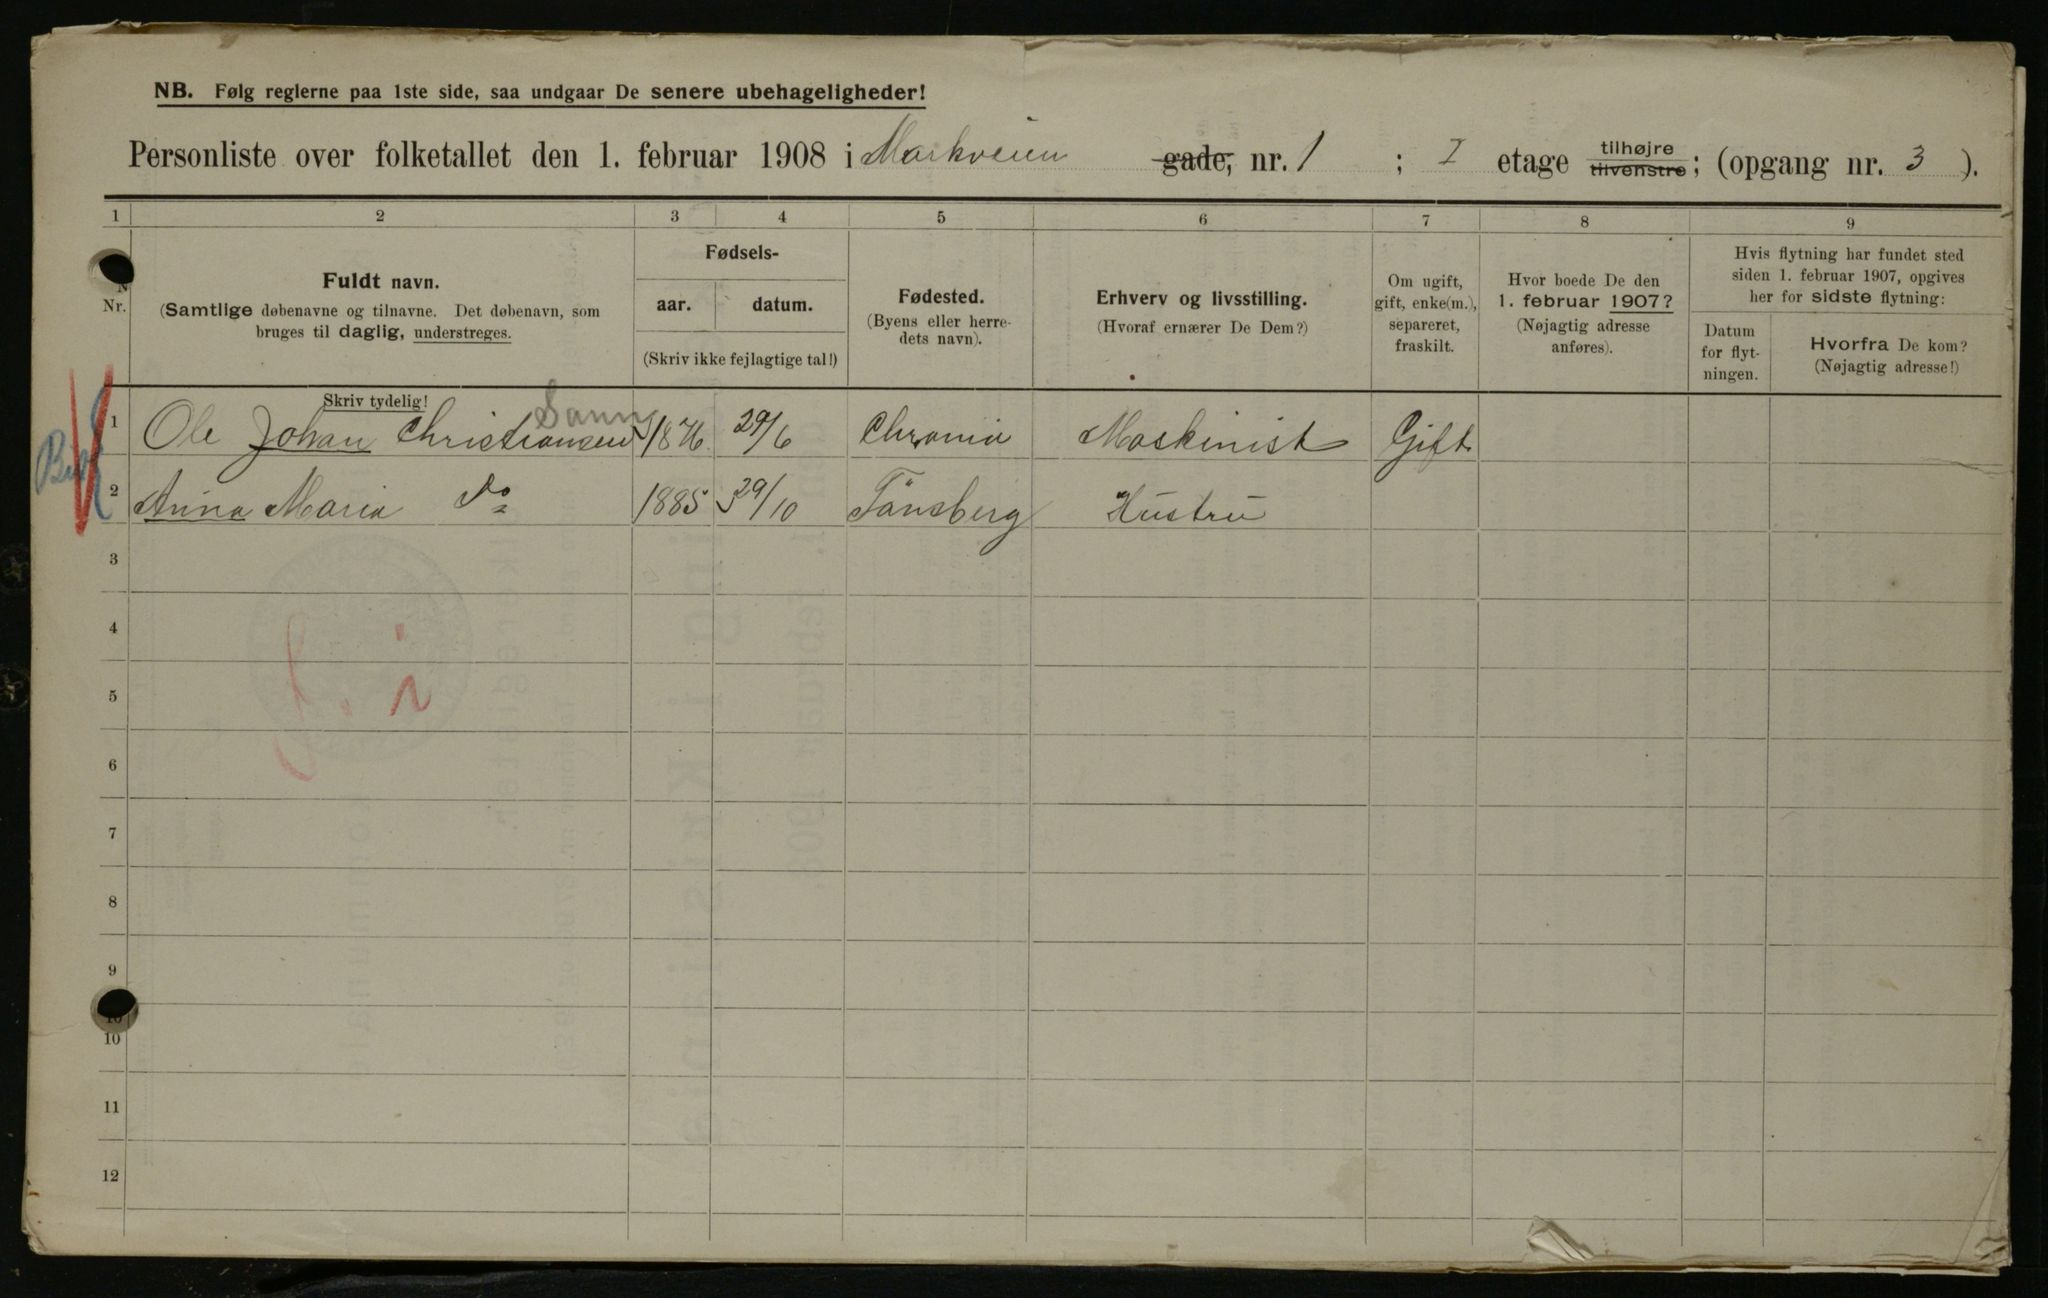 NB. Følg reglerne paa 1ste side, saa undgaar De senere ubehageligheder!
Personliste over folketallet den 1. februar 1908 i Markveien gade, nr. 1 ; I etage tilhøjre tilvenstre; (opgang nr. 3 ).
1 2 3 4 5 6 7 8 9
Nr.
Fuldt navn.
(Samtlige døbenavne og tilnavne. Det døbenavn, som
bruges til daglig, understreges.
Fødsels-
aar. datum.
(Skriv ikke fejlagtige tal!)
Fødested.
(Byens eller herre-
dets navn).
Erhverv og livsstilling.
(Hvoraf ernærer De Dem?)
Om ugift,
gift, enke(m.),
separeret,
fraskilt.
Hvor boede De den
1. februar 1907?
(Nøjagtig adresse
anføres).
Hvis flytning har fundet sted
siden 1. februar 1907, opgives
her for sidste flytning:
Datum
for flyt-
ningen.
Hvorfra De kom?
(Nøjagtig adresse!)
Skriv tydelig!
1 Ole Johan Christiansen 1876 29/6 Chrania Maskinist Gift
2 Anna Maria do 1885 29/10 Tönsberg Hustru
3
4
5
6
7
8
9
10
10
11
12